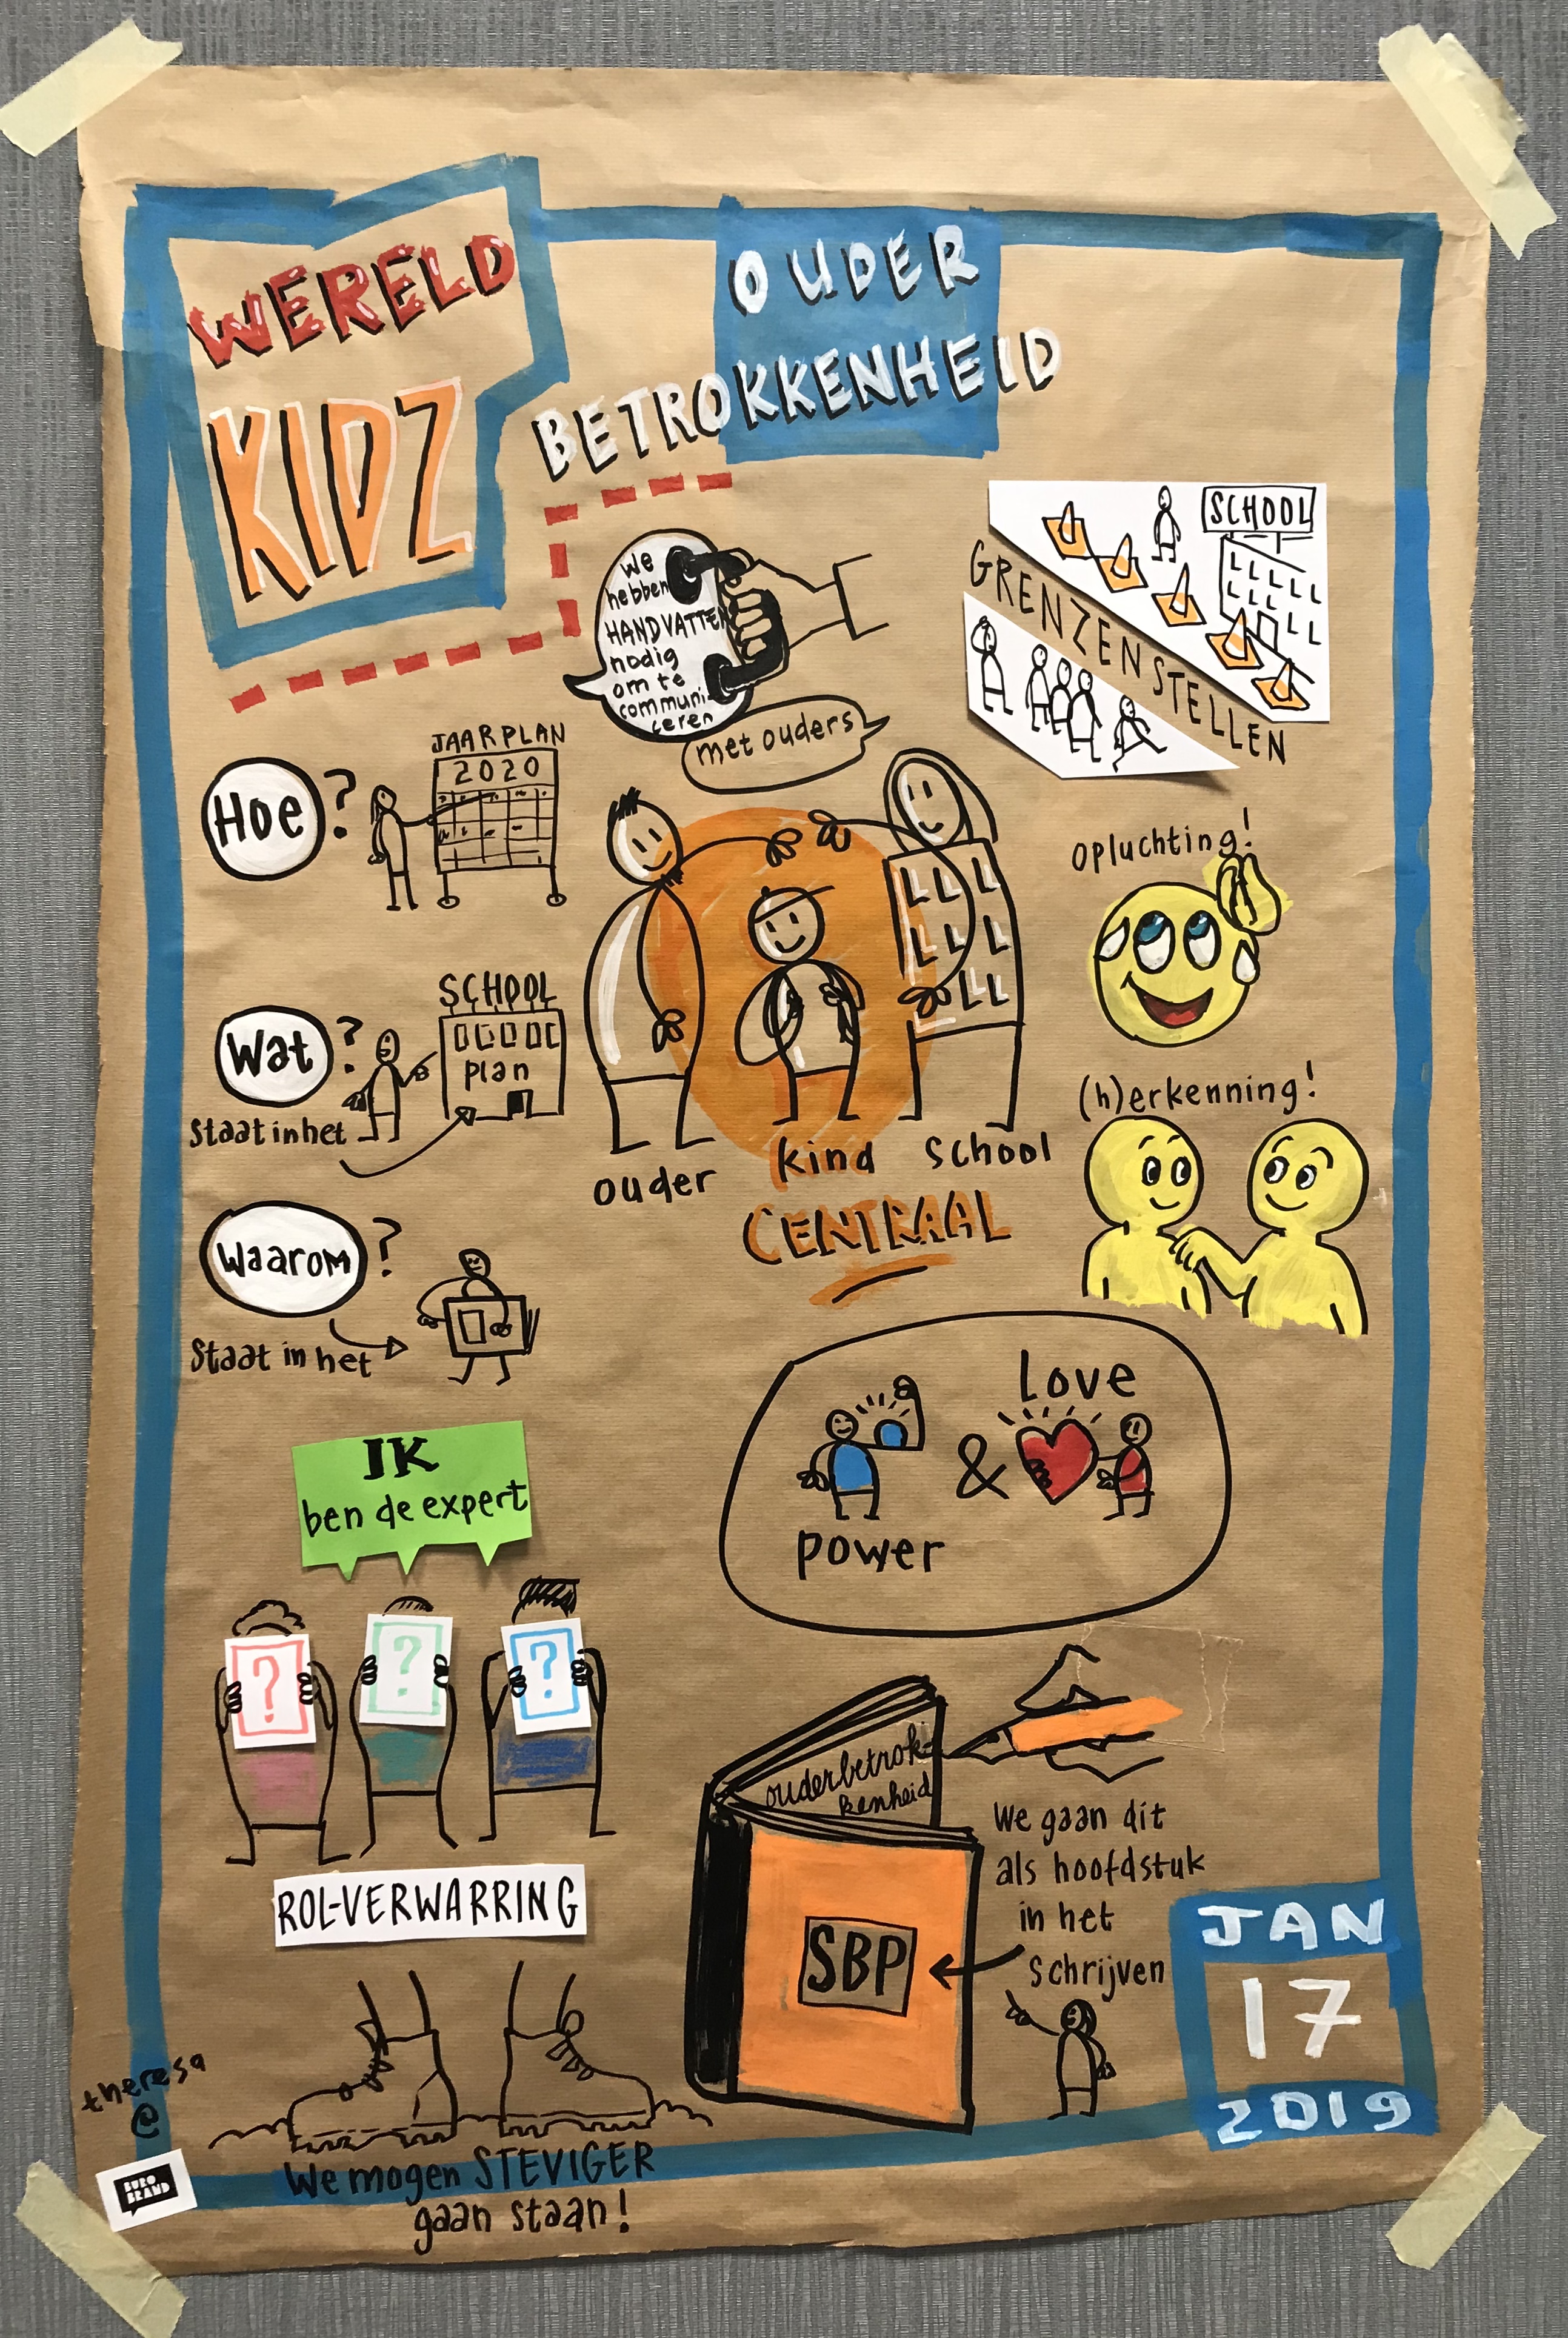 WERELD
KIDZ
OUDER
BETROKKENHEID
We
hebben
HANDVATTEN
nodig
om te
communi-
ceren
met ouders
SCHOOL
GRENZEN STELLEN
Hoe?
JAARPLAN
2020
opluchting!
Wat?
Staat in het
SCHOOL
plan
(h)erkenning!
ouder
kind
school
CENTRAAL
Waarom?
Staat in het
Love
&
power
IK
ben de expert
?
?
?
ROL-VERWARRING
ouderbetrok-
kenheid
We gaan dit
als hoofdstuk
in het
schrijven
SBP
JAN
17
2019
We mogen STEVIGER
gaan staan!
theresa
@
BURO
BRAND